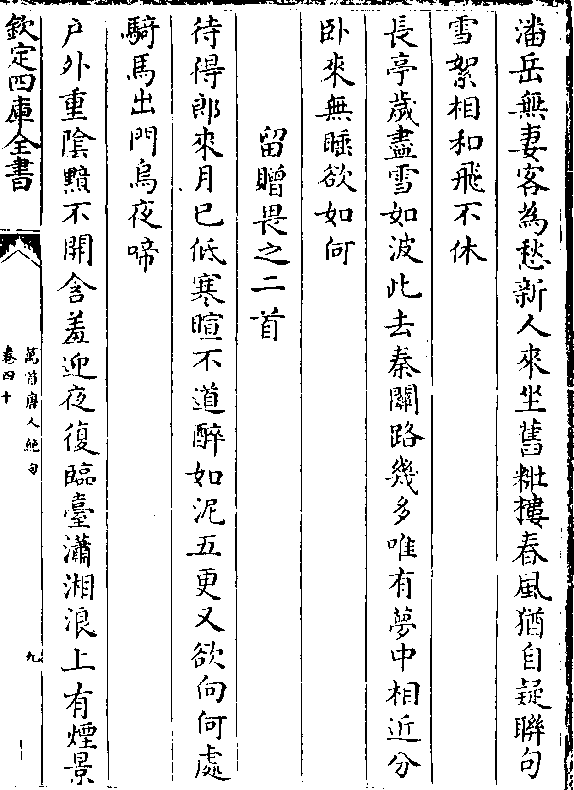 潘岳無妻客為愁新人來坐舊糚摟春風猶自疑聯句
雪絮相和飛不休
長亭歲盡雪如波此去秦關路幾多唯有夢中相近分
卧來無睡欲如何
留贈畏之二首
待得郎來月已低寒暄不道醉如泥五更又欲向何處
騎馬出門烏夜啼
户外重隂黯不開含羞迎夜復臨臺瀟湘浪上有煙景
欽定四庫全書
萬首唐人絶句
卷四十
九